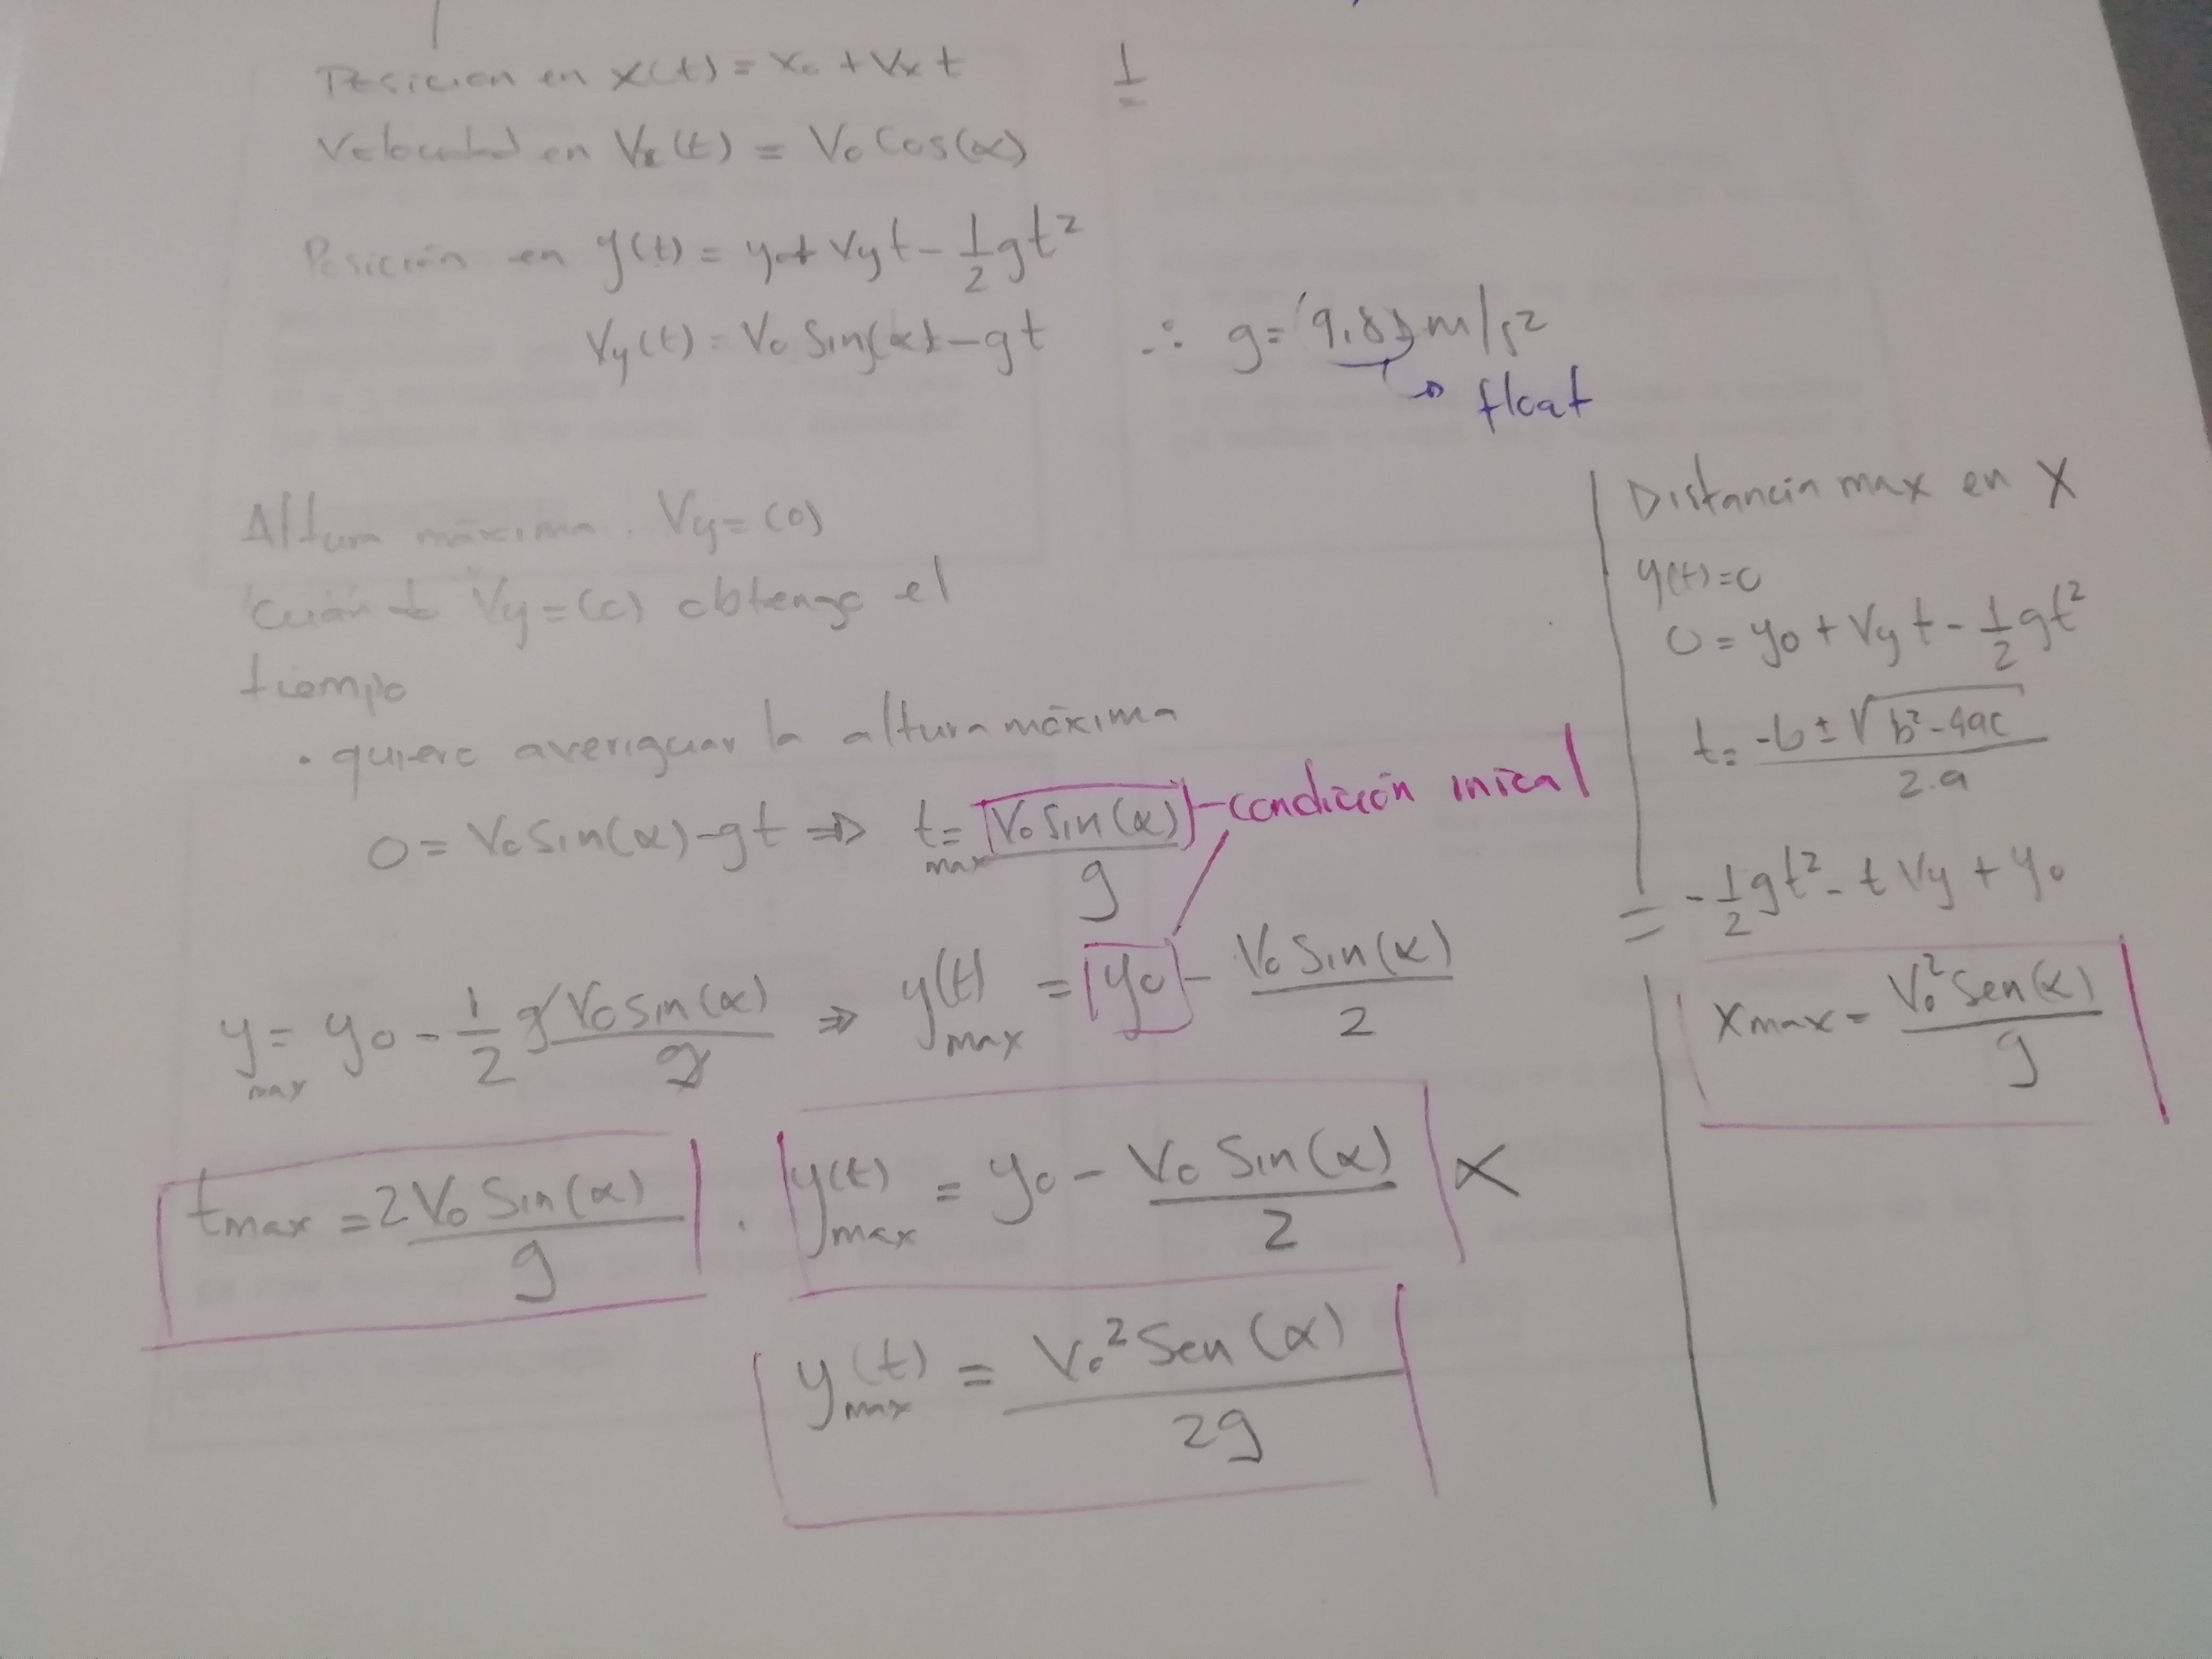 Posición en x(t) = x₀ + Vx t
1
Velocidad en Vx(t) = V₀ Cos(α)
Posición en y(t) = y₀ + Vy t - 1/2 gt²
Vy(t) = V₀ Sin(α) - gt ∴ g = (9.81) m/s²
→ float
Altura máxima. Vy = (0)
Cuándo Vy = (0) obtengo el
tiempo
• quiero averiguar la altura máxima
0 = V₀ Sin(α) - gt ⇒ t max = V₀ Sin(α) / g - condición inical
y max = y₀ - 1/2 g V₀ Sin(α) / g ⇒ y(t) max = y₀ - V₀ Sin(α) / 2
tmax = 2 V₀ Sin(α) / g . y(t) max = y₀ - V₀ Sin(α) / 2 X
y(t) max = V₀² Sen(α) / 2g
Distancia max en X
y(t) = 0
0 = y₀ + Vy t - 1/2 gt²
t = -b ± √b² - 4ac / 2.a
= - 1/2 gt² - t Vy + y₀
Xmax = V₀² Sen(α) / g